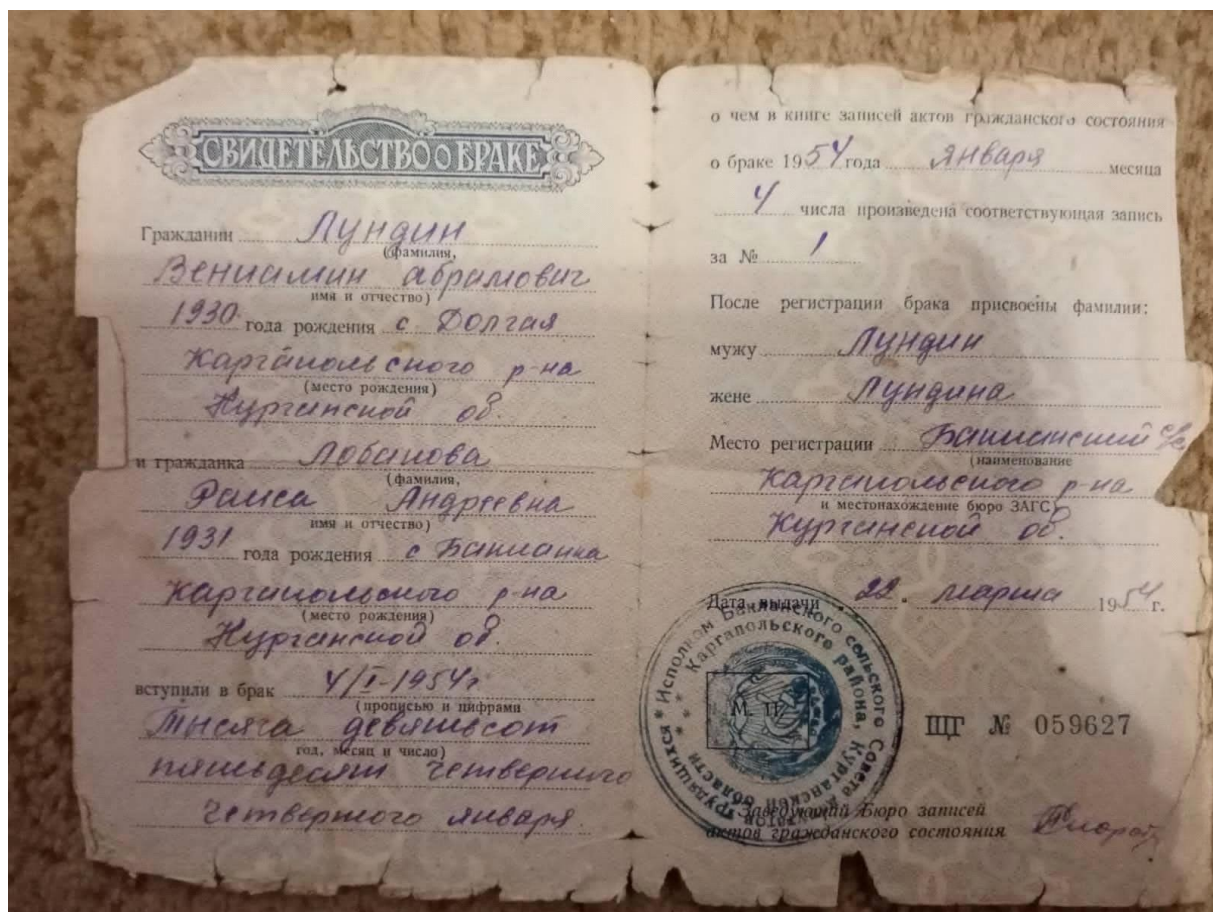 СВИДЕТЕЛЬСТВО О БРАКЕ
Гражданин Лундин
(фамилия,
Вениамин Абрамович
имя и отчество)
1930 года рождения с Долгая
Каргапольского р-на
(место рождения)
Курганской об.
и гражданка Лобанова
(фамилия,
Раиса Андреевна
имя и отчество)
1931 года рождения с Бакланка
Каргапольского р-на
(место рождения)
Курганской об.
вступили в брак 4/I-1954г
(прописью и цифрами
Тысяча девятьсот
год, месяц и число)
пятьдесят четвертого
четвертого января.
о чем в книге записей актов гражданского состояния
о браке 1954 года Января месяца
4 числа произведена соответствующая запись
за № 1
После регистрации брака присвоены фамилии:
мужу Лундин
жене Лундина
Место регистрации Бакланский
(наименование
Каргапольского р-на
и местонахождение бюро ЗАГС)
Курганской об.
Дата выдачи 22. марта 1954 г.
Исполком Бакланского сельского Совета депутатов трудящихся
Каргапольского района, Курганской области
М. П.
ЩГ № 059627
Заведующий Бюро записей
актов гражданского состояния